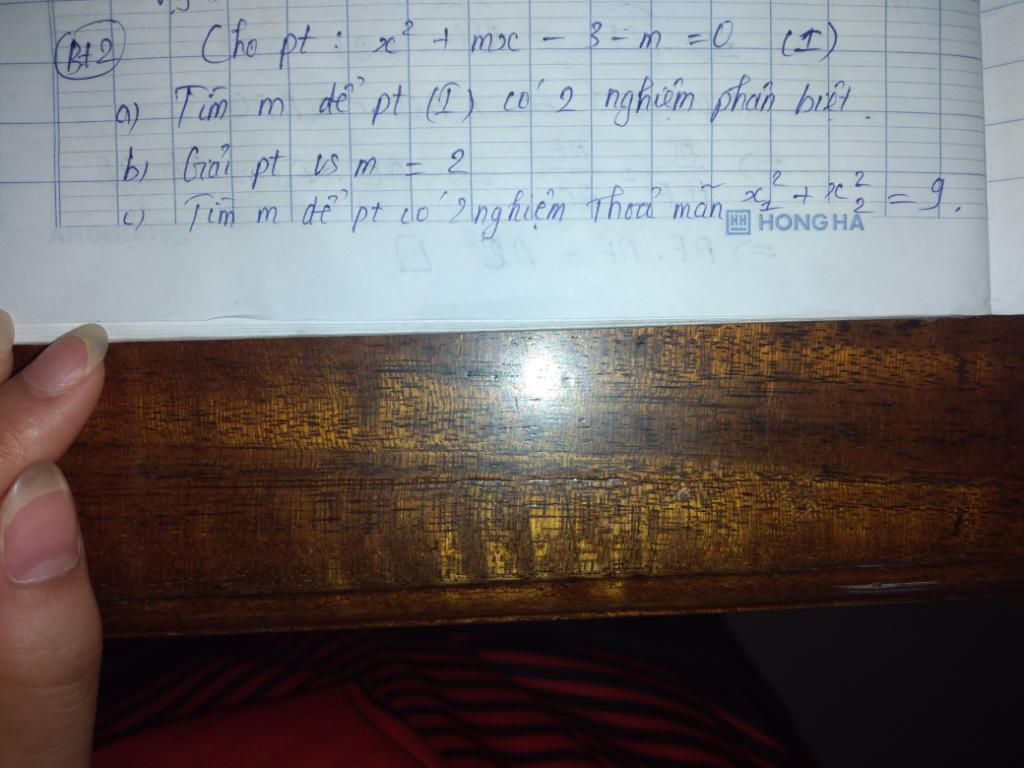 Bt2 Cho pt : x² + mx - 3 - m = 0 (I)
a) Tìm m để pt (I) có 2 nghiệm phân biệt.
b) Giải pt vs m = 2
c) Tìm m để pt có 2 nghiệm thoả mãn x₁² + x₂² = 9.
HH HONG HA